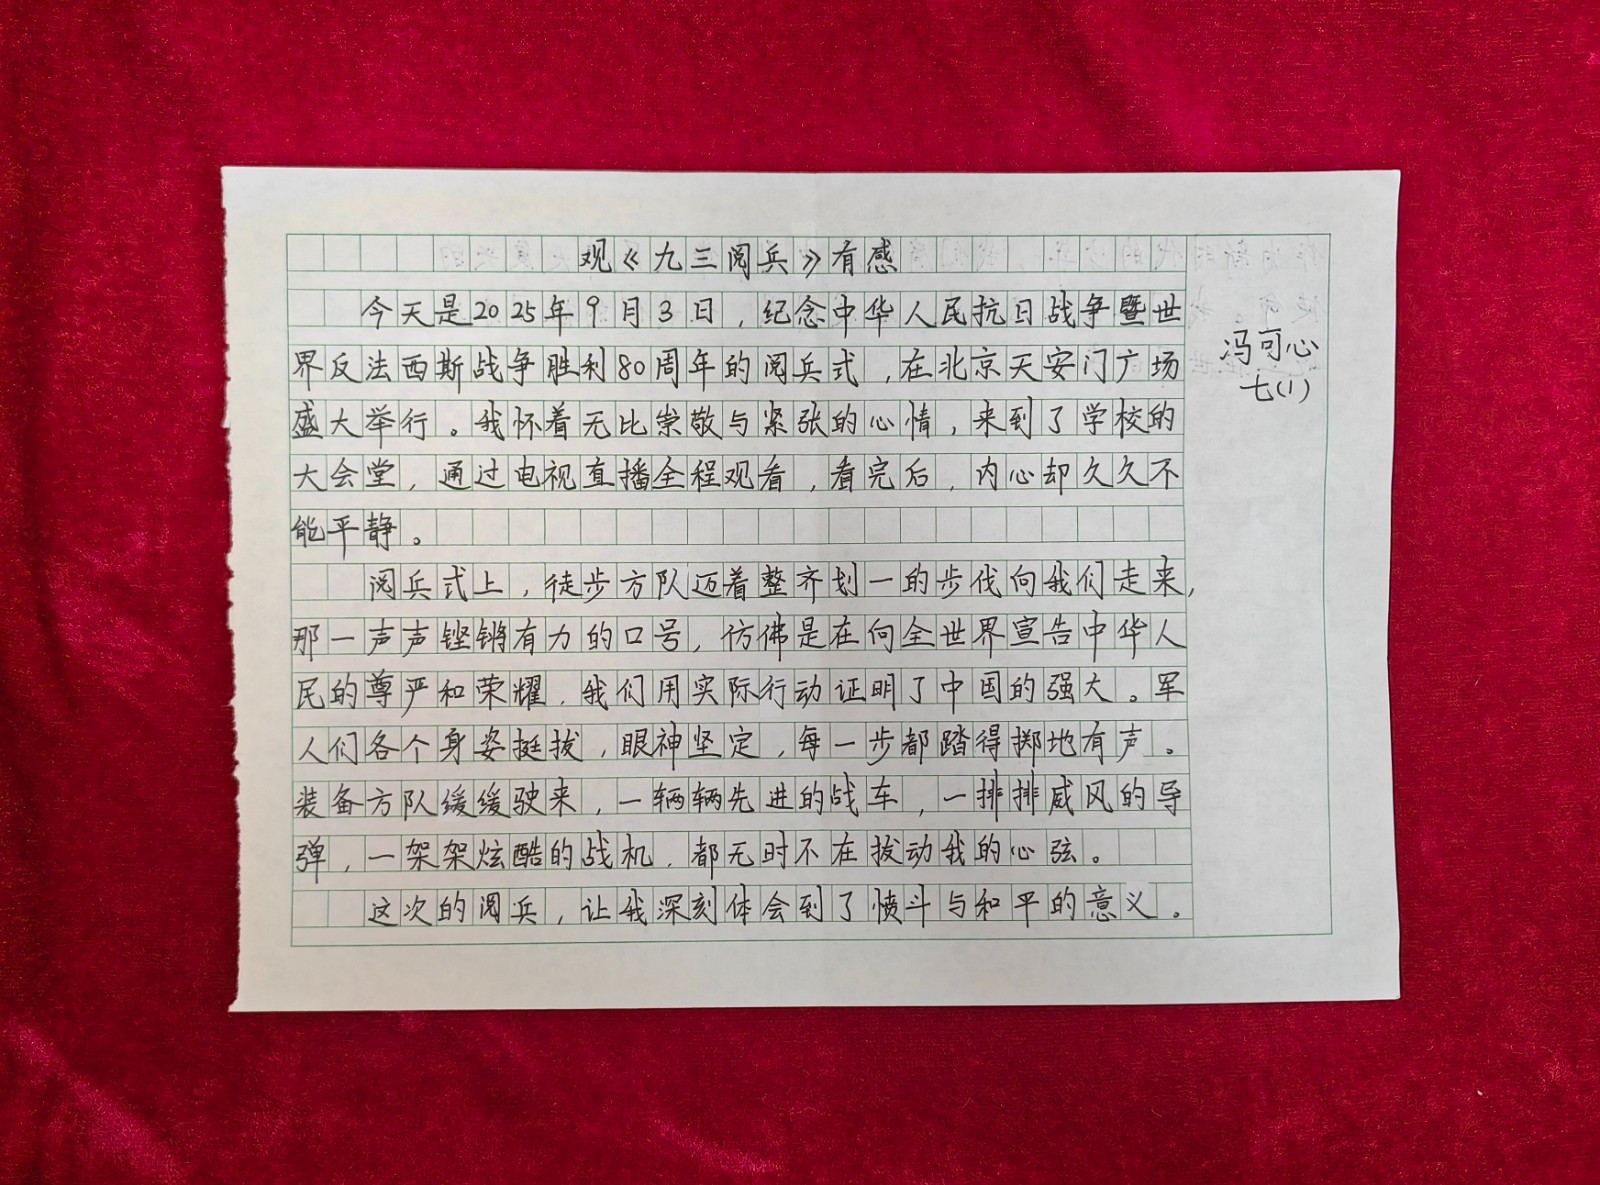 观《九三阅兵》有感
今天是2025年9月3日，纪念中华人民抗日战争暨世
界反法西斯战争胜利80周年的阅兵式，在北京天安门广场
盛大举行。我怀着无比崇敬与紧张的心情，来到了学校的
大会堂，通过电视直播全程观看，看完后，内心却久久不
能平静。
阅兵式上，徒步方队迈着整齐划一的步伐向我们走来，
那一声声铿锵有力的口号，仿佛是在向全世界宣告中华人
民的尊严和荣耀，我们用实际行动证明了中国的强大。军
人们各个身姿挺拔，眼神坚定，每一步都踏得掷地有声。
装备方队缓缓驶来，一辆辆先进的战车，一排排威风的导
弹，一架架炫酷的战机，都无时不在拔动我的心弦。
这次的阅兵，让我深刻体会到了愤斗与和平的意义。
冯可心
七(1)